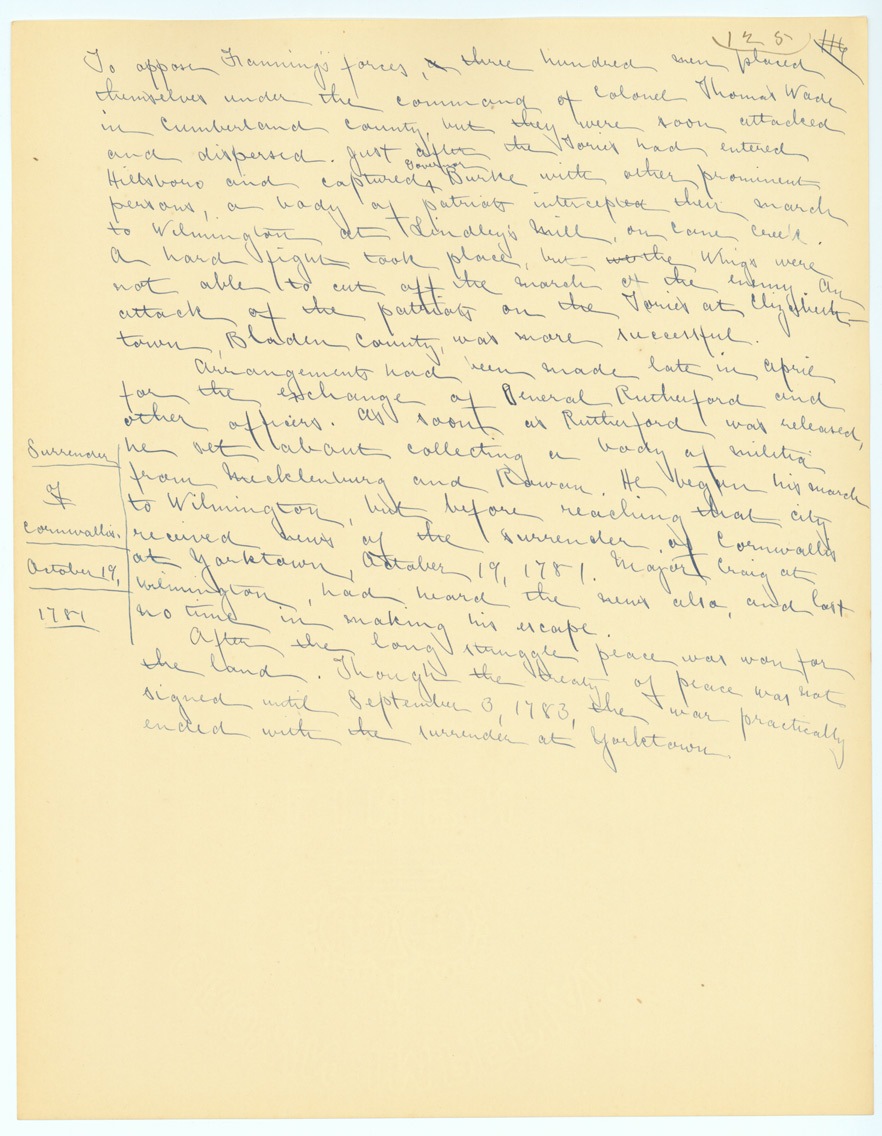 125
To oppose Fanning's forces, three hundred men placed
themselves under the command of Colonel Thomas Wade
in Cumberland County, but they were soon attacked
and dispersed. Just after the Tories had entered
Hillsboro and captured Governor Burke with other prominent
persons, a body of patriots intercepted their march
to Wilmington at Lindley's Mill, on Cane Creek.
A hard fight took place, but the Whigs were
not able to cut off the march of the enemy. An
attack of the patriots on the Tories at Elizabeth-
town, Bladen County, was more successful.
Arrangements had been made late in April
for the exchange of General Rutherford and
other officers. As soon as Rutherford was released,
he set about collecting a body of militia
from Mecklenburg and Rowan. He began his march
to Wilmington, but before reaching that city
received news of the surrender of Cornwallis
at Yorktown, October 19, 1781. Major Craig at
Wilmington, had heard the news also, and lost
no time in making his escape.
After the long struggle peace was won for
the land. Though the treaty of peace was not
signed until September 3, 1783, the war practically
ended with the surrender at Yorktown
Surrender
of
Cornwallis.
October 19,
1781